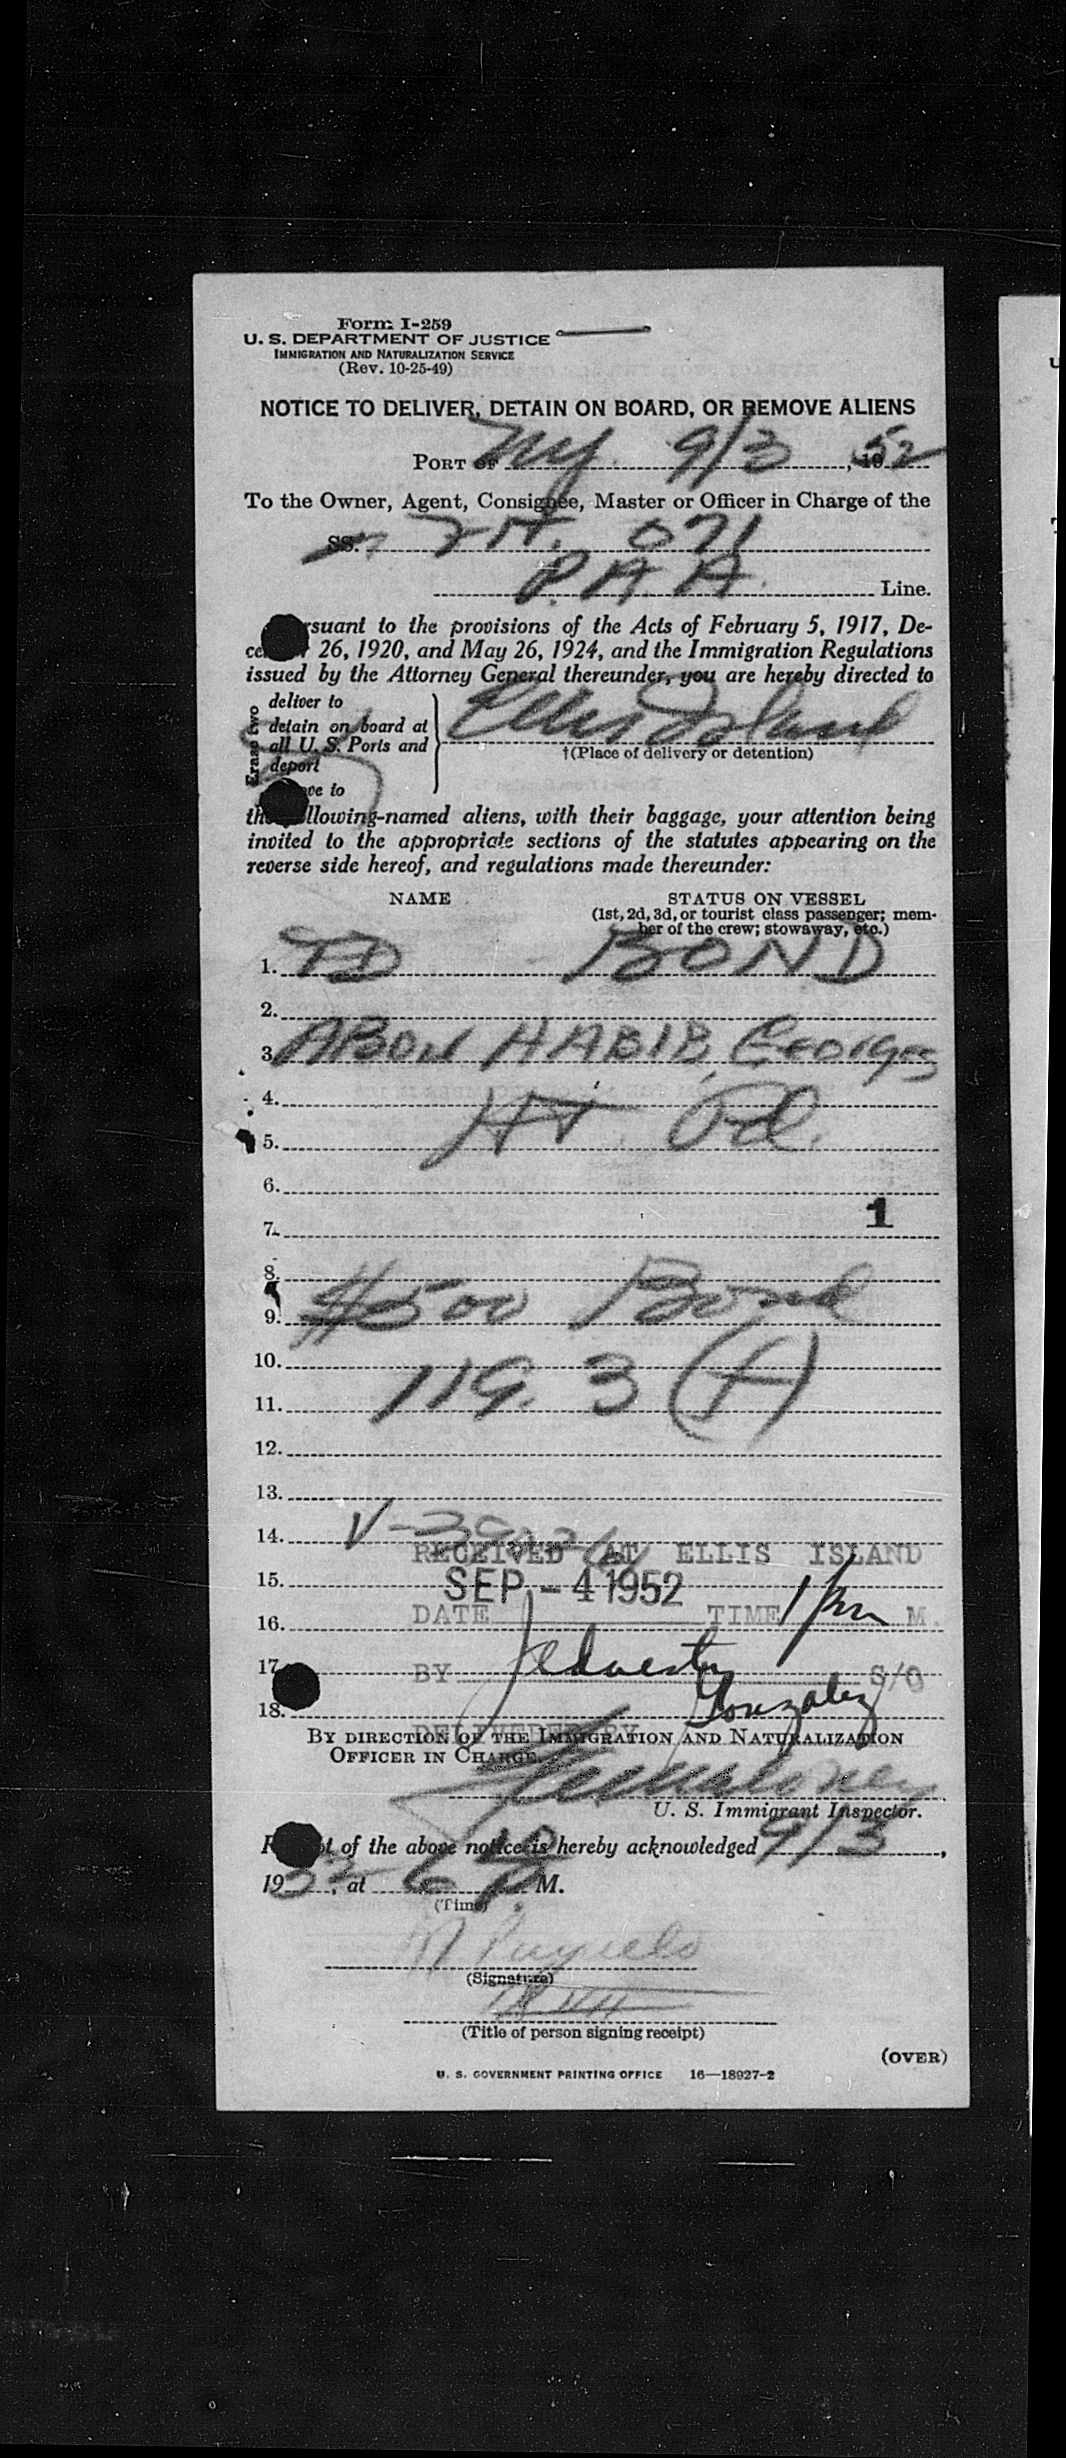 Form I-259
U. S. DEPARTMENT OF JUSTICE
IMMIGRATION AND NATURALIZATION SERVICE
(Rev. 10-25-49)
NOTICE TO DELIVER, DETAIN ON BOARD, OR REMOVE ALIENS
PORT OF NY. 9/3, 1952
To the Owner, Agent, Consignee, Master or Officer in Charge of the
SS. 071
P.A.A. Line.
rsuant to the provisions of the Acts of February 5, 1917, De-
ce 26, 1920, and May 26, 1924, and the Immigration Regulations
issued by the Attorney General thereunder, you are hereby directed to
Erase two
deliver to
detain on board at
all U. S. Ports and
deport
ve to
Ellis Island
†(Place of delivery or detention)
the following-named aliens, with their baggage, your attention being
invited to the appropriate sections of the statutes appearing on the
reverse side hereof, and regulations made thereunder:
NAME
STATUS ON VESSEL
(1st, 2d, 3d, or tourist class passenger; mem-
ber of the crew; stowaway, etc.)
1. TD BOND
2.
3. ABOU HABIB, Georges
4.
5. HT. Pd.
6.
7. 1
8.
9. $500 Bond
10.
11. 119. 3 (f)
12.
13.
14. V-
RECEIVED AT ELLIS ISLAND
15. SEP -4 1952
DATE TIME 1 pm M.
16.
17. BY S/O
18. Gonzalez
DELIVERED BY
BY DIRECTION OF THE IMMIGRATION AND NATURALIZATION
OFFICER IN CHARGE.
U. S. Immigrant Inspector.
R t of the above notice is hereby acknowledged 9/3,
1952, at 6 P M.
(Time)
(Signature)
(Title of person signing receipt)
(OVER)
U. S. GOVERNMENT PRINTING OFFICE 16—18927-2